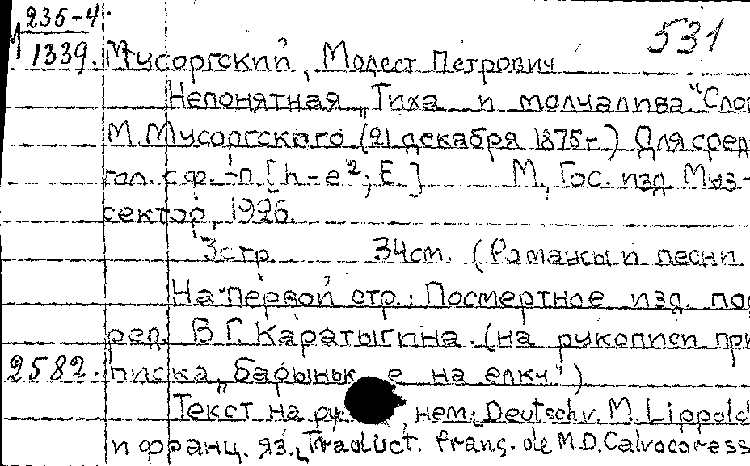 235-4
531
1339. Мусоргский, Модест Петрович
Непонятная „Тиха и молчалива" Сло
М. Мусоргского (21 декабря 1875-) Для сред
гол. с ф.-п. [h-e²; E.] М., Гос. изд. Муз-
сектор, 1926.
3 стр. 34 см. (Романсы и песни
На первой стр.: Посмертное изд. под
ред. В.Г. Каратыгина. (на рукописи при
2582. писка „Барыньк е на елку.")
Текст на ру , нем. „Deutsch v. M. Lippold
и франц. яз. „Traduct. franç. de M.D. Calvocoress